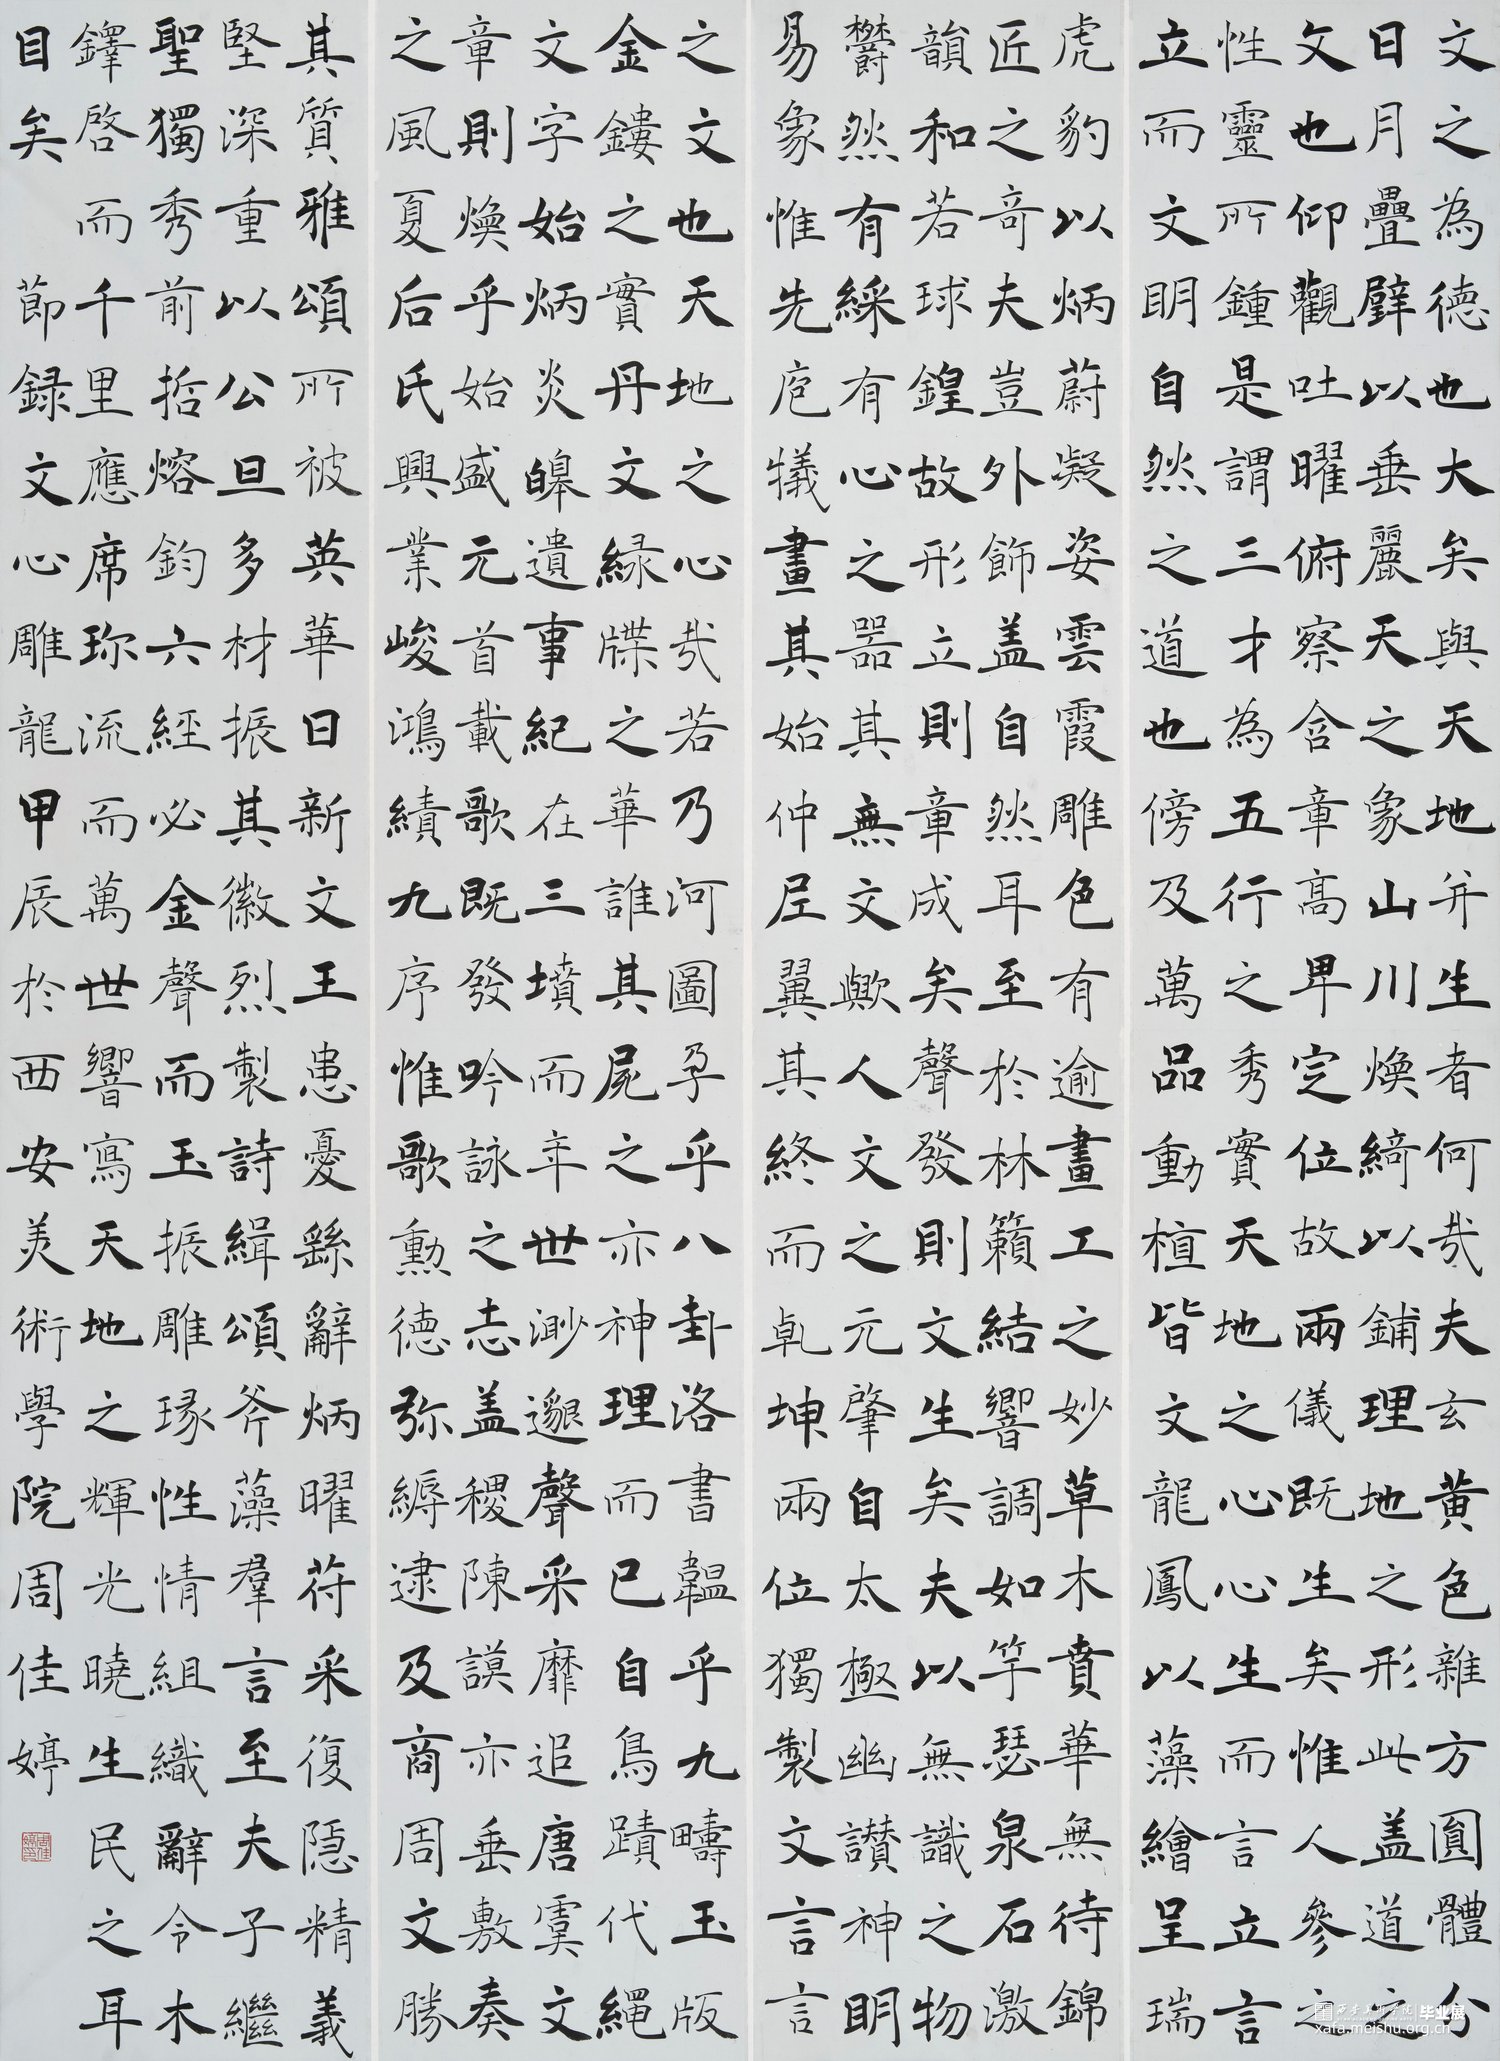 文之為德也大矣與天地并生者何哉夫玄黄色雜方圓體分
日月疊璧以垂麗天之象山川煥綺以鋪理地之形此盖道之
文也仰觀吐曜俯察含章高卑定位故兩儀既生矣惟人參之
性靈所鍾是謂三才為五行之秀實天地之心心生而言立言
立而文明自然之道也傍及萬品動植皆文龍鳳以藻繪呈瑞
虎豹以炳蔚凝姿雲霞雕色有逾畫工之妙草木賁華無待錦
匠之奇夫豈外飾盖自然耳至於林籟結響調如竽瑟泉石激
韻和若球鍠故形立則章成矣聲發則文生矣夫以無識之物
欝然有綵有心之器其無文歟人文之元肇自太極幽讃神明
易象惟先庖犧畫其始仲尼翼其終而乹坤兩位獨製文言言
之文也天地之心哉若乃河圖孕乎八卦洛書韞乎九疇玉版
金鏤之實丹文緑牒之華誰其屍之亦神理而已自鳥蹟代繩
文字始炳炎皞遺事紀在三墳而年世渺邈聲采靡追唐虞文
章則煥乎始盛元首載歌既發吟詠之志盖稷陳謨亦垂敷奏
之風夏后氏興業峻鴻績九序惟歌勲德弥縟逮及商周文勝
其質雅頌所被英華日新文王患憂繇辭炳曜符采復隱精義
堅深重以公旦多材振其徽烈製詩緝頌斧藻羣言至夫子繼
聖獨秀前哲熔鈞六經必金聲而玉振雕琢性情組織辭令木
鐸啓而千里應席珍流而萬世響寫天地之輝光曉生民之耳
目矣 節録文心雕龍甲辰於西安美術學院周佳婷
西安美術学院 毕业展
xafa.meishu.org.cn